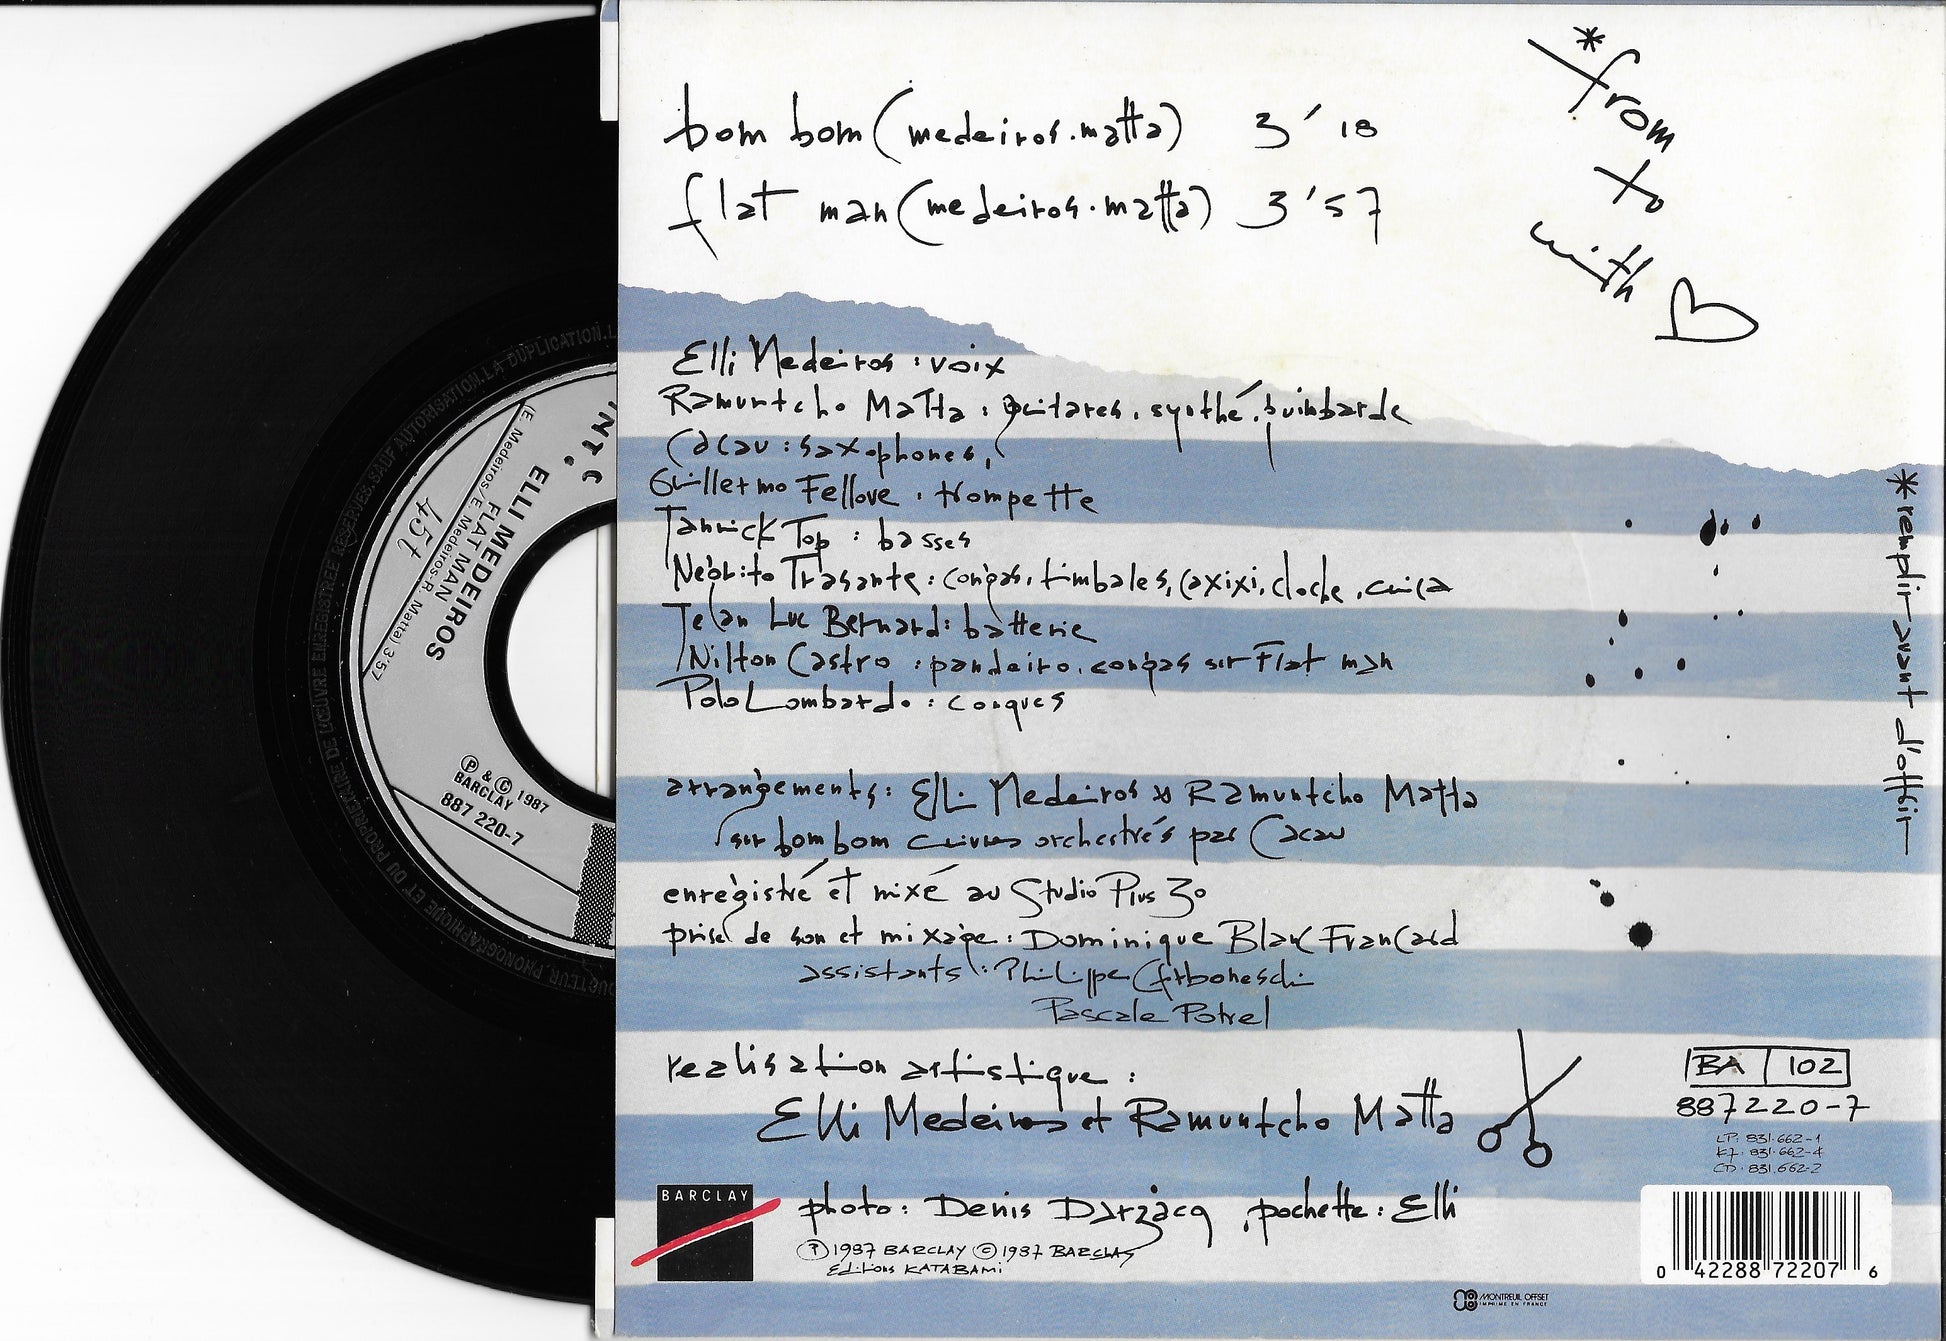 bom bom (medeiros.matta) 3'18
flat man (medeiros.matta) 3'57
*from
to
with
Elli Medeiros : voix
Ramuntcho Matta : guitares, synthé, guimbarde
Cacau : saxophones,
Guillermo Fellove : trompette
Jannick Top : basses
Negrito Trasante : congas, timbales, caxixi, cloche, cuica
Jean Luc Bernard : batterie
Nilton Castro : pandeiro, congas sur Flat man
Polo Lombardo : conques
*remplir avant d'offrir
arrangements : Elli Medeiros & Ramuntcho Matta
sur bom bom cuivres orchestrés par Cacau
enregistré et mixé au Studio Plus 30
prise de son et mixage : Dominique Blanc Francard
assistants : Philippe
Pascale Potrel
realisation artistique :
Elli Medeiros et Ramuntcho Matta
BA 102
887220-7
LP: 831.662-1
K7: 831.662-4
CD: 831.662-2
BARCLAY
photo : Denis Darzacq, pochette : Elli
Ⓟ 1987 BARCLAY © 1987 BARCLAY
Editions KATABAMI
0 42288 72207 6
MONTREUIL OFFSET
IMPRIMÉ EN FRANCE
INT. C
ELLI MEDEIROS
FLAT MAN
(E. Medeiros/E. Medeiros-R. Matta) 3'57
45t
Ⓟ & © 1987
BARCLAY
887 220-7
DUCTEUR PHONOGRAPHIQUE ET DU PROPRIÉTAIRE DE L'ŒUVRE ENREGISTRÉE RÉSERVÉS. SAUF AUTORISATION, LA DUPLICATION, L